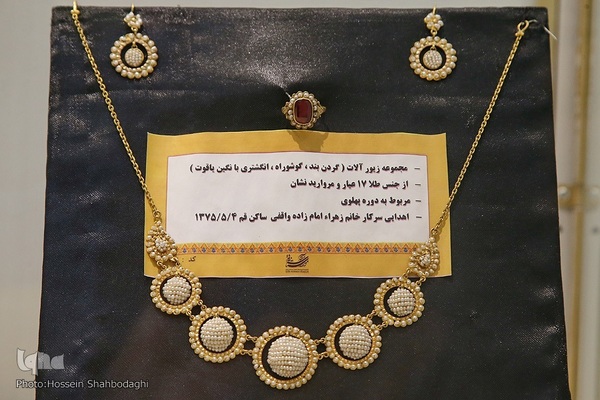 – مجموعه زیور آلات ( گردن بند ، گوشوراه ، انگشتری با نگین یاقوت )
– از جنس طلا ۱۷ عیار و مروارید نشان
– مربوط به دوره پهلوی
– اهدایی سرکار خانم زهراء امام زاده واقفی ساکن قم ۱۳۷۵/۵/۴
کد :
iqna
Photo:Hossein Shahbodaghi